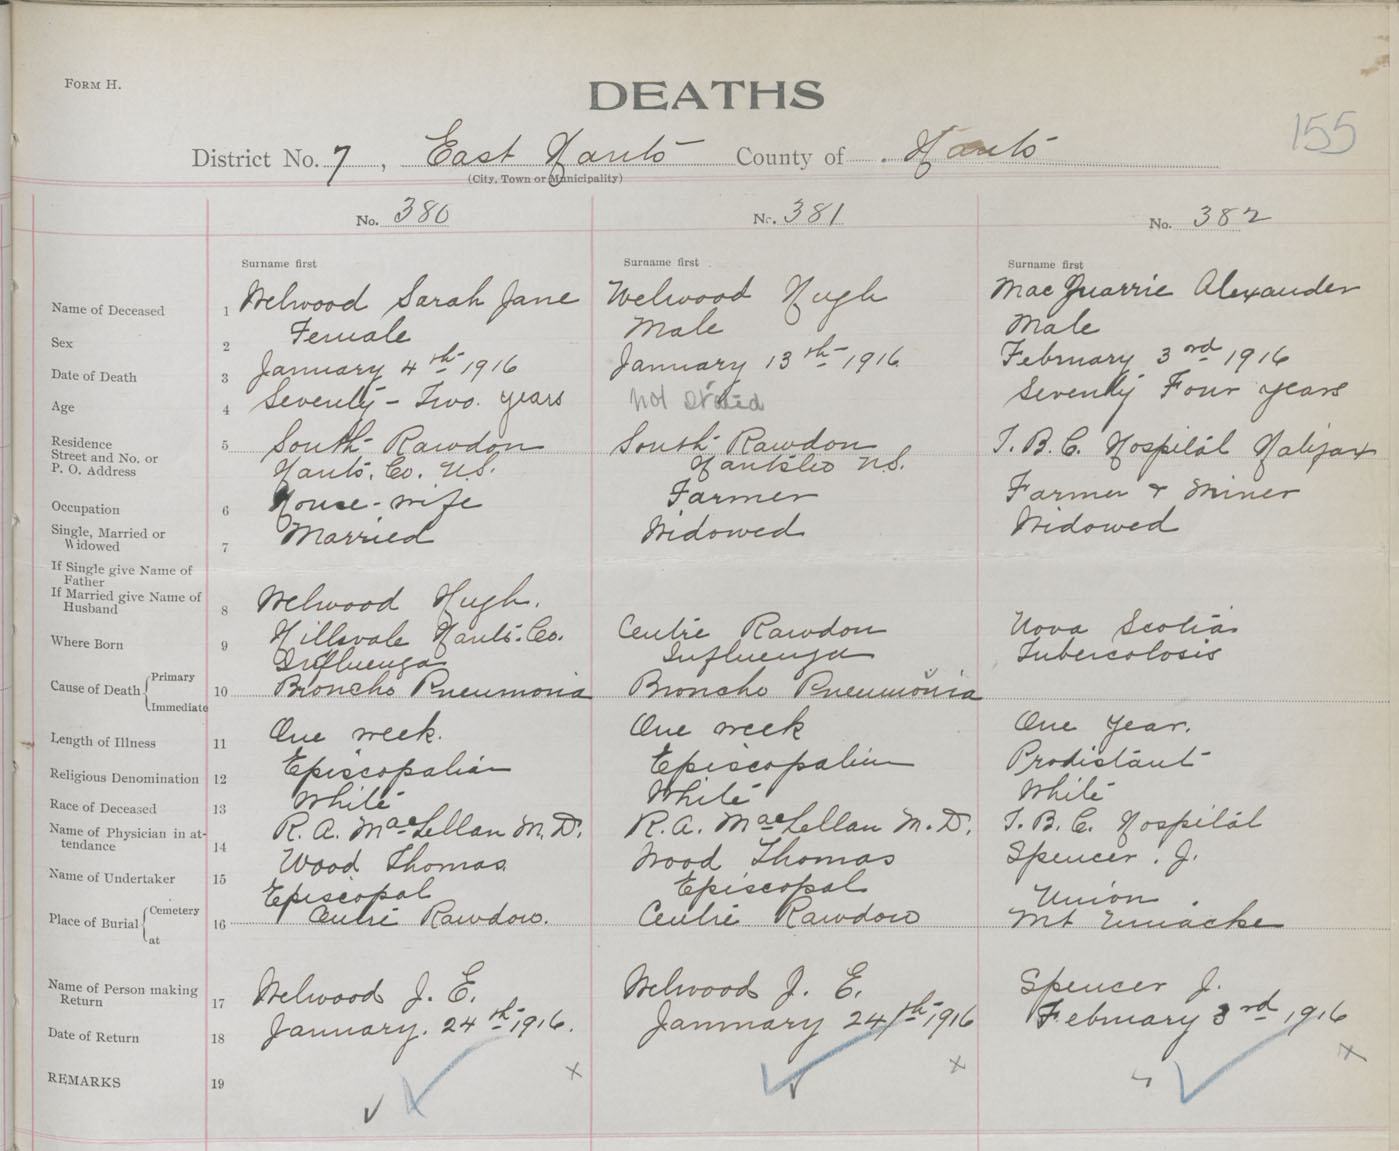 FORM H.
DEATHS
155
District No. 7, East Hants County of Hants
(City, Town or Municipality)
No. 380 No. 381 No. 382
Surname first Surname first Surname first
Name of Deceased 1 Welwood Sarah Jane Welwood Hugh MacQuarrie Alexander
Sex 2 Female Male Male
Date of Death 3 January 4th 1916 January 13th 1916 February 3rd 1916
Age 4 Seventy-Two years Not Stated Seventy Four years
Residence 5 South Rawdon South Rawdon T.B.C. Hospital Halifax
Street and No. or
P. O. Address Hants. Co. N.S. Hants Co N.S.
Occupation 6 House-wife Farmer Farmer & Miner
Single, Married or
Widowed 7 Married Widowed Widowed
If Single give Name of
Father
If Married give Name of
Husband 8 Welwood Hugh.
Where Born 9 Hillsvale Hants. Co. Centre Rawdon Nova Scotia
Influenza Influenza Tubercolosis
Cause of Death { Primary
Immediate 10 Broncho Pneumonia Broncho Pneumonia
Length of Illness 11 One week. One week One year.
Religious Denomination 12 Episcopalian Episcopalian Prodistant
Race of Deceased 13 White White White
Name of Physician in at-
tendance 14 R. A. MacLellan M.D. R. A. MacLellan M.D. T.B.C. Hospital
Name of Undertaker 15 Wood Thomas Wood Thomas Spencer. J.
Place of Burial { Cemetery Episcopal Episcopal Union
at 16 Centre Rawdon. Centre Rawdon Mt Uniacke
Name of Person making
Return 17 Welwood J. E. Welwood J. E. Spencer J.
Date of Return 18 January. 24th 1916. Jannuary 24th 1916 February 3rd 1916
REMARKS 19